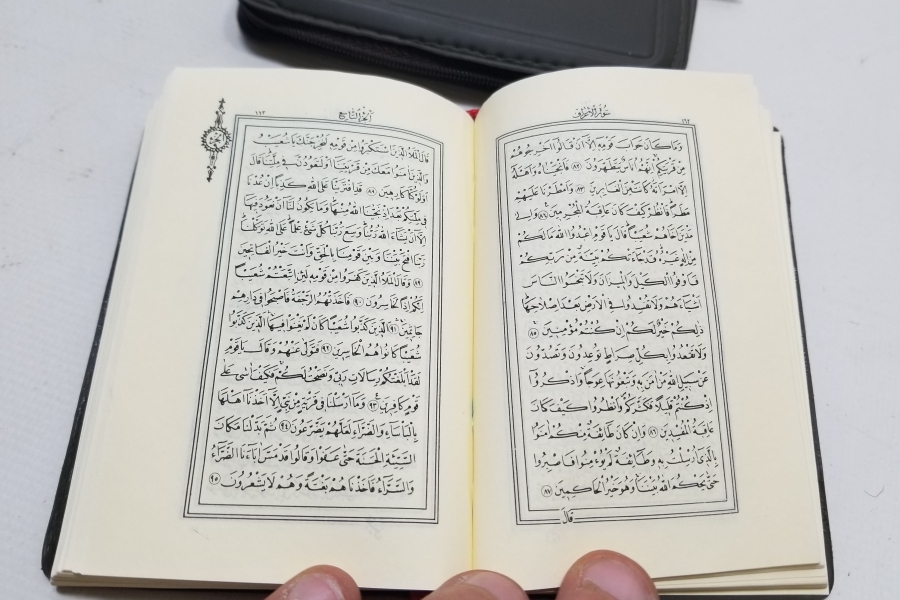 سُورَةُ الْأَعْرَافِ ١٦٢
وَمَا كَانَ جَوَابَ قَوْمِهِ إِلَّا أَنْ قَالُوا أَخْرِجُوهُمْ
مِنْ قَرْيَتِكُمْ إِنَّهُمْ أُنَاسٌ يَتَطَهَّرُونَ ٨٢ فَأَنْجَيْنَاهُ وَأَهْلَهُ
إِلَّا امْرَأَتَهُ كَانَتْ مِنَ الْغَابِرِينَ ٨٣ وَأَمْطَرْنَا عَلَيْهِمْ
مَطَرًا فَانْظُرْ كَيْفَ كَانَ عَاقِبَةُ الْمُجْرِمِينَ ٨٤ وَإِلَى
مَدْيَنَ أَخَاهُمْ شُعَيْبًا قَالَ يَا قَوْمِ اعْبُدُوا اللَّهَ مَا لَكُمْ
مِنْ إِلَهٍ غَيْرُهُ قَدْ جَاءَتْكُمْ بَيِّنَةٌ مِنْ رَبِّكُمْ
فَأَوْفُوا الْكَيْلَ وَالْمِيزَانَ وَلَا تَبْخَسُوا النَّاسَ
أَشْيَاءَهُمْ وَلَا تُفْسِدُوا فِي الْأَرْضِ بَعْدَ إِصْلَاحِهَا
ذَلِكُمْ خَيْرٌ لَكُمْ إِنْ كُنْتُمْ مُؤْمِنِينَ ٨٥
وَلَا تَقْعُدُوا بِكُلِّ صِرَاطٍ تُوعِدُونَ وَتَصُدُّونَ
عَنْ سَبِيلِ اللَّهِ مَنْ آمَنَ بِهِ وَتَبْغُونَهَا عِوَجًا وَاذْكُرُوا
إِذْ كُنْتُمْ قَلِيلًا فَكَثَّرَكُمْ وَانْظُرُوا كَيْفَ كَانَ
عَاقِبَةُ الْمُفْسِدِينَ ٨٦ وَإِنْ كَانَ طَائِفَةٌ مِنْكُمْ آمَنُوا
بِالَّذِي أُرْسِلْتُ بِهِ وَطَائِفَةٌ لَمْ يُؤْمِنُوا فَاصْبِرُوا
حَتَّى يَحْكُمَ اللَّهُ بَيْنَنَا وَهُوَ خَيْرُ الْحَاكِمِينَ ٨٧
قَالَ
الْجُزْءُ التَّاسِعُ ١٦٣
قَالَ الْمَلَأُ الَّذِينَ اسْتَكْبَرُوا مِنْ قَوْمِهِ لَنُخْرِجَنَّكَ يَا شُعَيْبُ
وَالَّذِينَ آمَنُوا مَعَكَ مِنْ قَرْيَتِنَا أَوْ لَتَعُودُنَّ فِي مِلَّتِنَا قَالَ
أَوَلَوْ كُنَّا كَارِهِينَ ٨٨ قَدِ افْتَرَيْنَا عَلَى اللَّهِ كَذِبًا إِنْ عُدْنَا
فِي مِلَّتِكُمْ بَعْدَ إِذْ نَجَّانَا اللَّهُ مِنْهَا وَمَا يَكُونُ لَنَا أَنْ نَعُودَ فِيهَا
إِلَّا أَنْ يَشَاءَ اللَّهُ رَبُّنَا وَسِعَ رَبُّنَا كُلَّ شَيْءٍ عِلْمًا عَلَى اللَّهِ تَوَكَّلْنَا
رَبَّنَا افْتَحْ بَيْنَنَا وَبَيْنَ قَوْمِنَا بِالْحَقِّ وَأَنْتَ خَيْرُ الْفَاتِحِينَ
٨٩ وَقَالَ الْمَلَأُ الَّذِينَ كَفَرُوا مِنْ قَوْمِهِ لَئِنِ اتَّبَعْتُمْ شُعَيْبًا
إِنَّكُمْ إِذًا لَخَاسِرُونَ ٩٠ فَأَخَذَتْهُمُ الرَّجْفَةُ فَأَصْبَحُوا فِي دَارِهِمْ
جَاثِمِينَ ٩١ الَّذِينَ كَذَّبُوا شُعَيْبًا كَأَنْ لَمْ يَغْنَوْا فِيهَا الَّذِينَ كَذَّبُوا
شُعَيْبًا كَانُوا هُمُ الْخَاسِرِينَ ٩٢ فَتَوَلَّى عَنْهُمْ وَقَالَ يَا قَوْمِ
لَقَدْ أَبْلَغْتُكُمْ رِسَالَاتِ رَبِّي وَنَصَحْتُ لَكُمْ فَكَيْفَ آسَى عَلَى
قَوْمٍ كَافِرِينَ ٩٣ وَمَا أَرْسَلْنَا فِي قَرْيَةٍ مِنْ نَبِيٍّ إِلَّا أَخَذْنَا أَهْلَهَا
بِالْبَأْسَاءِ وَالضَّرَّاءِ لَعَلَّهُمْ يَضَّرَّعُونَ ٩٤ ثُمَّ بَدَّلْنَا مَكَانَ
السَّيِّئَةِ الْحَسَنَةَ حَتَّى عَفَوْا وَقَالُوا قَدْ مَسَّ آبَاءَنَا الضَّرَّاءُ
وَالسَّرَّاءُ فَأَخَذْنَاهُمْ بَغْتَةً وَهُمْ لَا يَشْعُرُونَ ٩٥